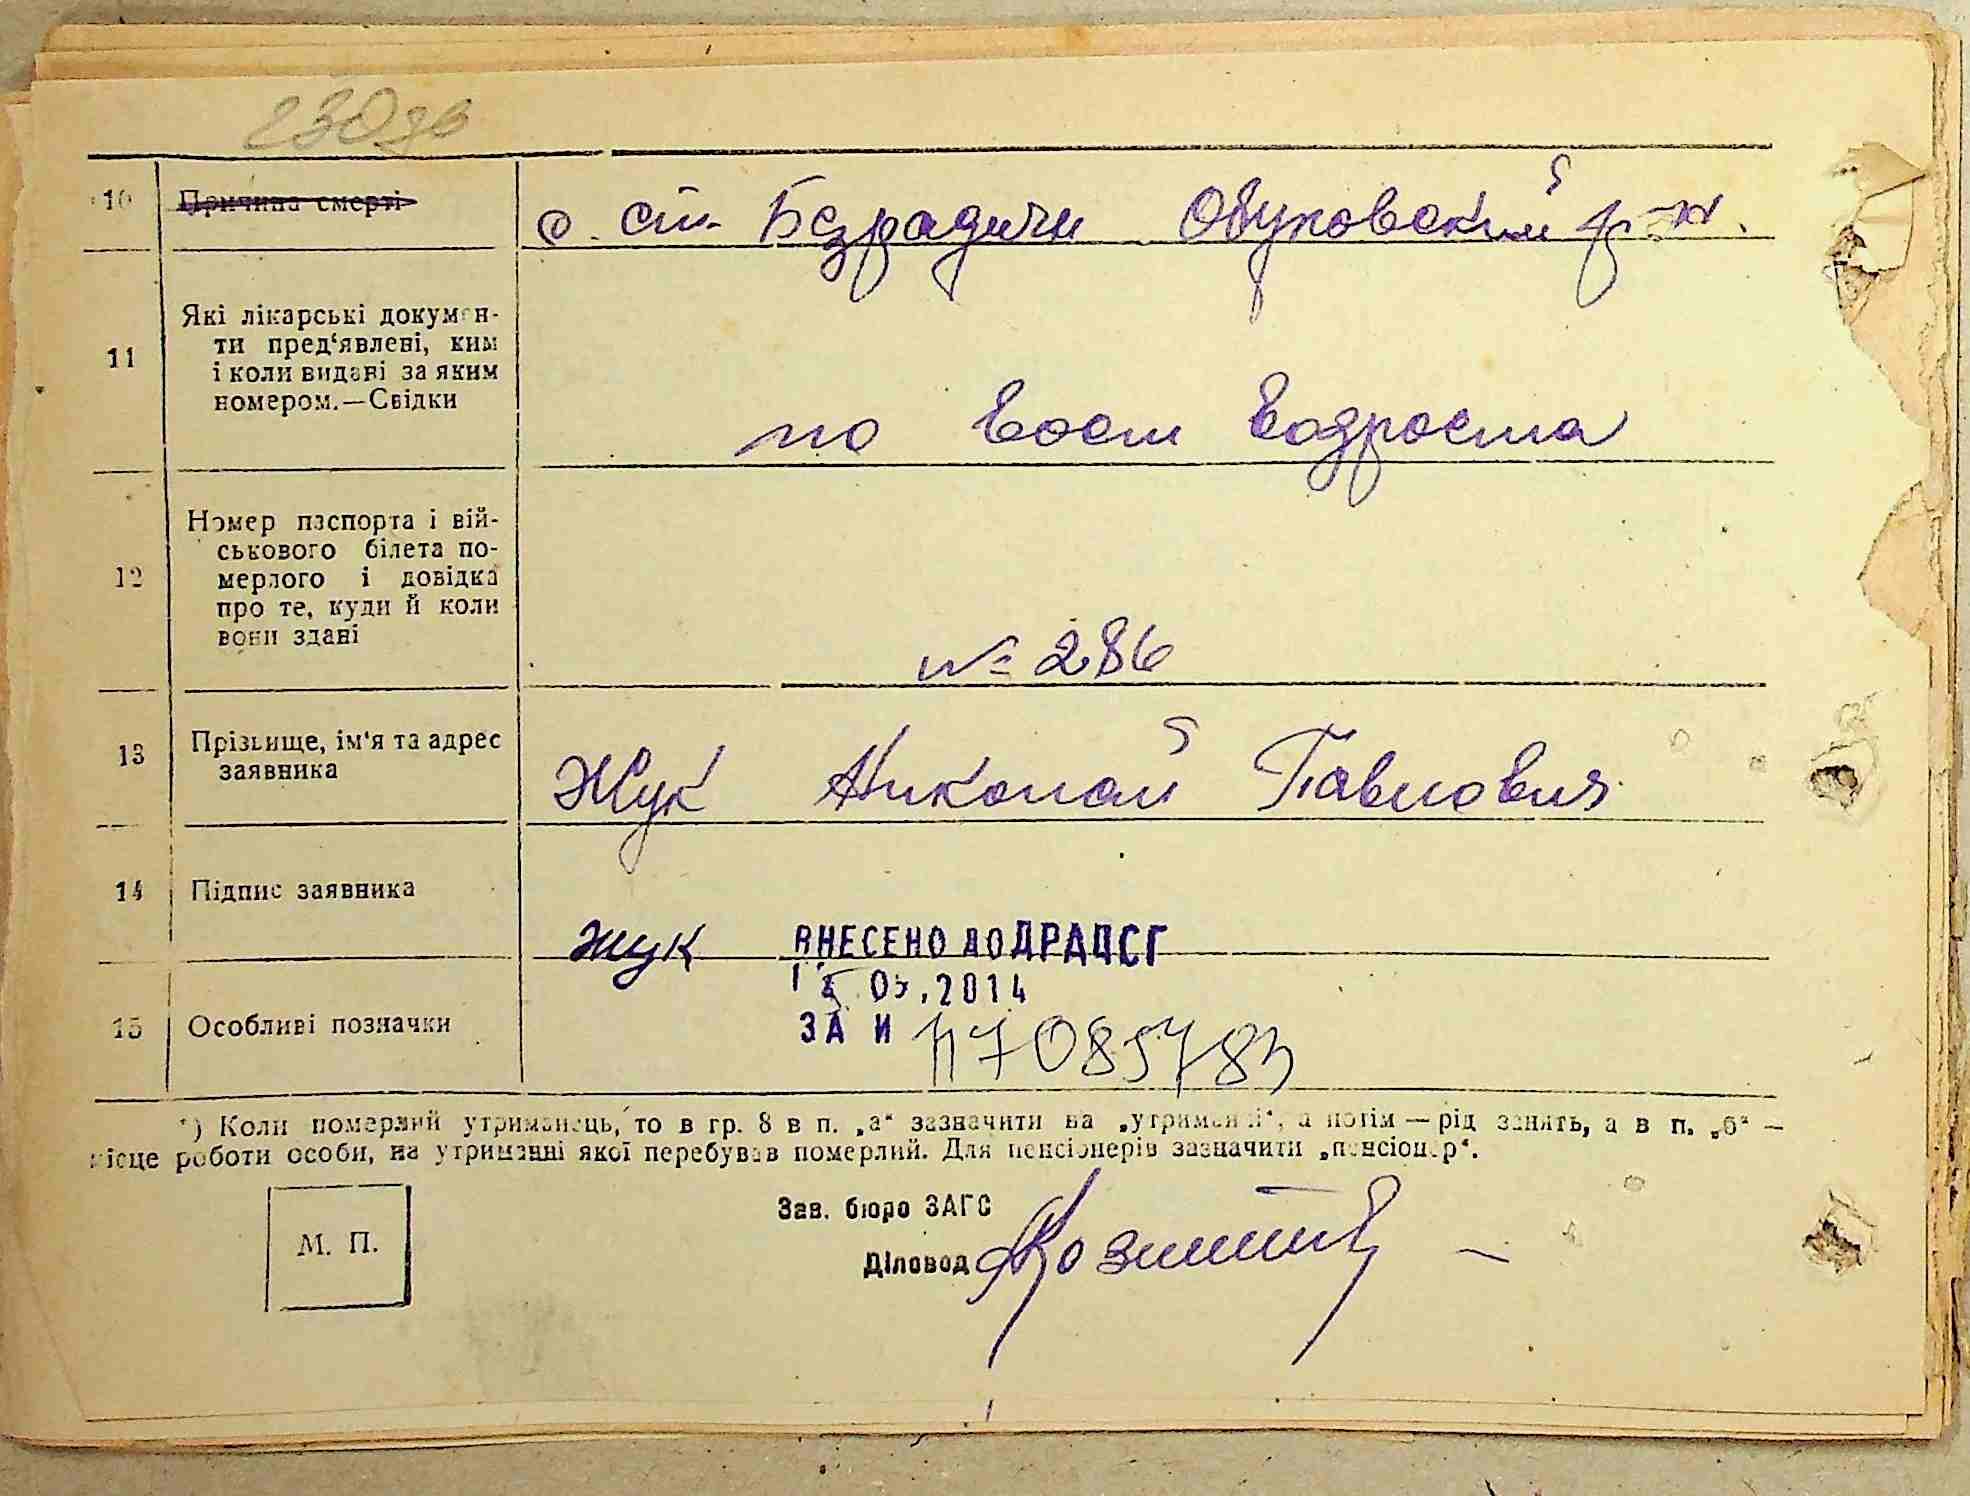 230зв
10
Причина смерті
с. ст. Безрадичи Обуховский р-н.
11
Які лікарські докумен-
ти пред‘явлені, ким
і коли видані за яким
номером.—Свідки
по восст возроста
12
Номер паспорта і вій-
ськового білета по-
мерлого і довідка
про те, куди й коли
вони здані
№ 286
13
Прізвище, ім‘я та адрес
заявника
Жук Николай Павлович
14
Підпис заявника
Жук
ВНЕСЕНО ДО ДРАЦСГ
03.2014
ЗА И 117085783
15
Особливі позначки
*) Коли померлий утриманець, то в гр. 8 в п. „а“ зазначити на „утриманні“, а потім — рід занять, а в п. „б“ —
місце роботи особи, на утриманні якої перебував померлий. Для пенсіонерів зазначити „пенсіонер“.
М. П.
Зав. бюро ЗАГС
Діловод